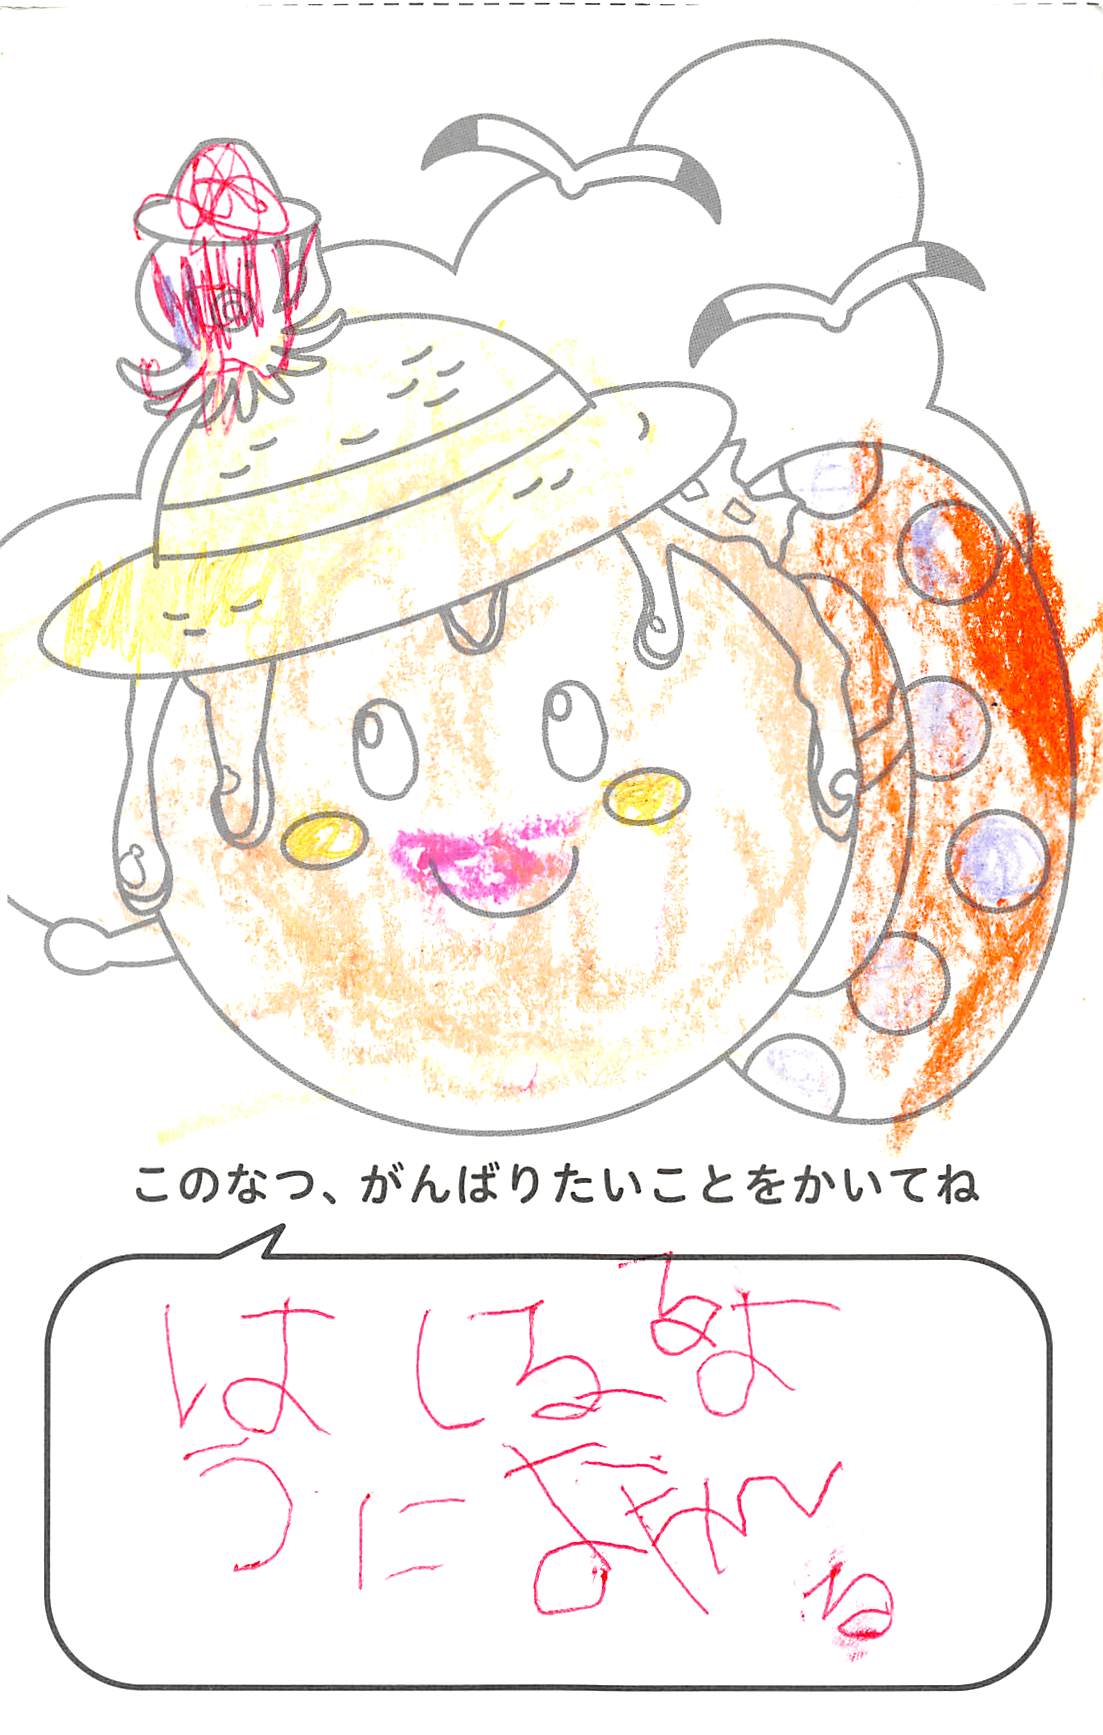 このなつ、がんばりたいことをかいてね
はしるるよ
うに